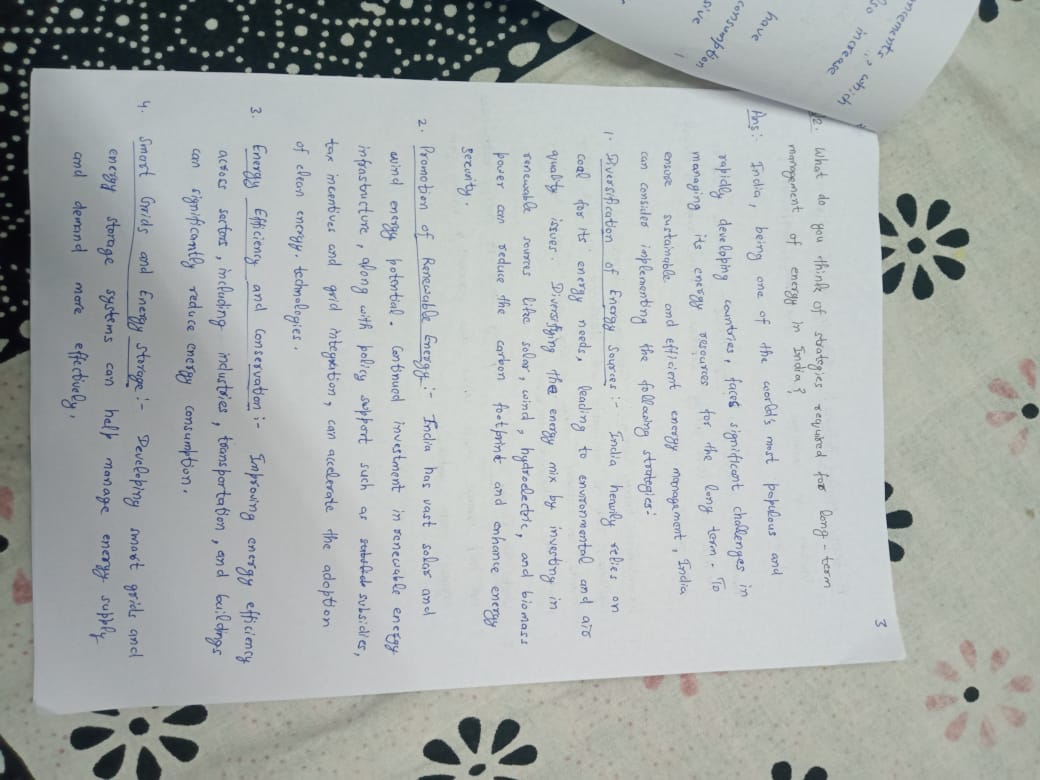 ncements, which
so increase
have
consumption
ove
3
2. What do you think of strategies required for long-term
management of energy in India?
Ans:- India, being one of the world's most populous and
rapidly developing countries, faces significant challenges in
managing its energy resources for the long term. To
ensure sustainable and efficient energy management, India
can consider implementing the following strategies:
1. Diversification of Energy Sources:- India heavily relies on
coal for its energy needs, leading to environmental and air
quality issues. Diversifying the energy mix by investing in
renewable sources like solar, wind, hydroelectric, and biomass
power can reduce the carbon footprint and enhance energy
security.
2. Promotion of Renewable Energy:- India has vast solar and
wind energy potential. Continued investment in renewable energy
infrastructure, along with policy support such as subsidies,
tax incentives and grid integration, can accelerate the adoption
of clean energy. technologies.
3. Energy Efficiency and Conservation:- Improving energy efficiency
across sectors, including industries, transportation, and buildings
can significantly reduce energy consumption.
4. Smart Grids and Energy Storage:- Developing smart grids and
energy storage systems can help manage energy supply
and demand more effectively.